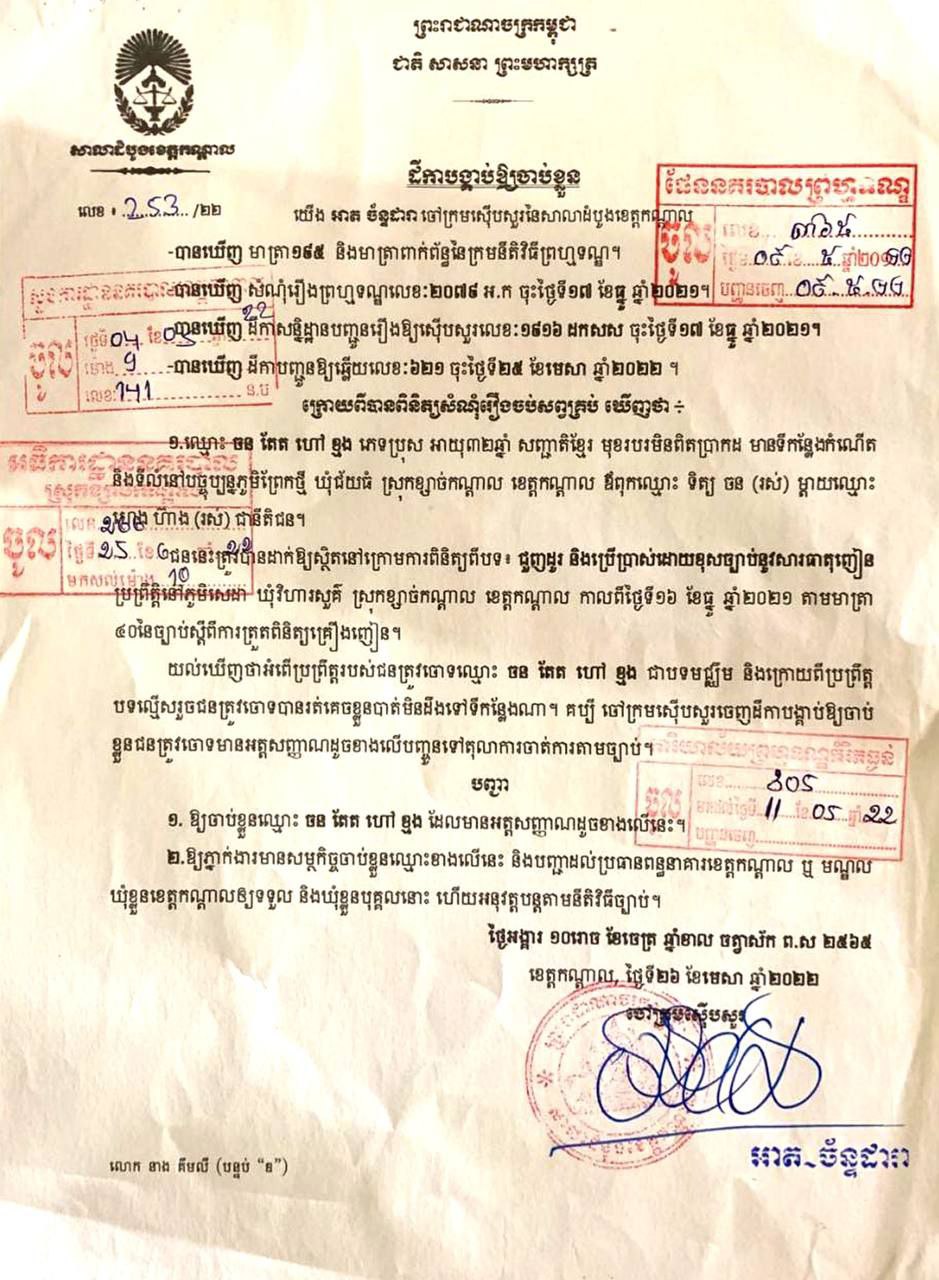 ព្រះរាជាណាចក្រកម្ពុជា
ជាតិ សាសនា ព្រះមហាក្សត្រ
សាលាដំបូងខេត្តកណ្ដាល
ដីកាបង្គាប់ឱ្យចាប់ខ្លួន
លេខ ៖ 253/២២
ផែននគរបាលព្រហ្មទណ្ឌ
យើង អាត ច័ន្ទដារា ចៅក្រមស៊ើបសួរនៃសាលាដំបូងខេត្តកណ្ដាល
ចូល
លេខ
-បានឃើញ មាត្រា១៩៥ និងមាត្រាពាក់ព័ន្ធនៃក្រមនីតិវិធីព្រហ្មទណ្ឌ។
បញ្ជូនចេញ
-បានឃើញ សំណុំរឿងព្រហ្មទណ្ឌលេខ:២០៧៩ អ.ក ចុះថ្ងៃទី១៧ ខែធ្នូ ឆ្នាំ២០២១។
-បានឃើញ ដីកាសន្និដ្ឋានបញ្ជូនរឿងឱ្យស៊ើបសួរលេខ:១៩១៦ ដកសស ចុះថ្ងៃទី១៧ ខែធ្នូ ឆ្នាំ២០២១។
ចូល
ថ្ងៃទី 04 ខែ 05 22
ម៉ោង 9
-បានឃើញ ដីកាបញ្ជូនឱ្យឆ្លើយលេខ:៦២១ ចុះថ្ងៃទី២៥ ខែមេសា ឆ្នាំ២០២២ ។
លេខ: 141 ន.ប
ក្រោយពីបានពិនិត្យសំណុំរឿងចប់សព្វគ្រប់ ឃើញថា ÷
១.ឈ្មោះ ចន តែត ហៅ ខ្មង ភេទប្រុស អាយុ៣២ឆ្នាំ សញ្ជាតិខ្មែរ មុខរបរមិនពិតប្រាកដ មានទីកន្លែងកំណើត
អធិការដ្ឋាននគរបាល
និងទីលំនៅបច្ចុប្បន្នភូមិព្រែកថ្មី ឃុំជ័យធំ ស្រុកខ្សាច់កណ្ដាល ខេត្តកណ្ដាល ឪពុកឈ្មោះ ទិត្យ ចន (រស់) ម្ដាយឈ្មោះ
ស្រុកខ្សាច់កណ្ដាល
ហ៊ាង (រស់) ជានីតិជន។
ចូល
លេខ
ថ្ងៃទី 25 ខែ 22
មកសល់ម៉ោង 10
ជននេះត្រូវបានដាក់ឱ្យស្ថិតនៅក្រោមការពិនិត្យពីបទ៖ ជួញដូរ និងប្រើប្រាស់ដោយខុសច្បាប់នូវសារធាតុញៀន
ប្រព្រឹត្តិនៅភូមិសេដា ឃុំវិហារសួគ៌ ស្រុកខ្សាច់កណ្ដាល ខេត្តកណ្ដាល កាលពីថ្ងៃទី១៦ ខែធ្នូ ឆ្នាំ២០២១ តាមមាត្រា
៤០នៃច្បាប់ស្ដីពីការត្រួតពិនិត្យគ្រឿងញៀន។
យល់ឃើញថាអំពើប្រព្រឹត្តរបស់ជនត្រូវចោទឈ្មោះ ចន តែត ហៅ ខ្មង ជាបទមជ្ឈិម និងក្រោយពីប្រព្រឹត្ត
បទល្មើសរួចជនត្រូវចោទបានរត់គេចខ្លួនបាត់មិនដឹងទៅទីកន្លែងណា។ គប្បី ចៅក្រមស៊ើបសួរចេញដីកាបង្គាប់ឱ្យចាប់
ខ្លួនជនត្រូវចោទមានអត្តសញ្ញាណដូចខាងលើបញ្ជូនទៅតុលាការចាត់ការតាមច្បាប់។
ការិយាល័យព្រហ្មទណ្ឌកំរិតធ្ងន់
បញ្ជា
ចូល
លេខ
មកដល់ថ្ងៃទី 11 ខែ 05 ឆ្នាំ 22
បញ្ជូនចេញ
១. ឱ្យចាប់ខ្លួនឈ្មោះ ចន តែត ហៅ ខ្មង ដែលមានអត្តសញ្ញាណដូចខាងលើនេះ។
២.ឱ្យភ្នាក់ងារមានសមត្ថកិច្ចចាប់ខ្លួនឈ្មោះខាងលើនេះ និងបញ្ជាដល់ប្រធានពន្ធនាគារខេត្តកណ្ដាល ឬ មណ្ឌល
ឃុំខ្លួនខេត្តកណ្ដាលឲ្យទទួល និងឃុំខ្លួនបុគ្គលនោះ ហើយអនុវត្តបន្តតាមនីតិវិធីច្បាប់។
ថ្ងៃអង្គារ ១០រោច ខែចេត្រ ឆ្នាំខាល ចត្វាស័ក ព.ស ២៥៦៥
ខេត្តកណ្ដាល, ថ្ងៃទី២៦ ខែមេសា ឆ្នាំ២០២២
ចៅក្រមស៊ើបសួរ
អាត ច័ន្ទដារា
លោក នាង គឹមលី (បន្ទប់ “ខ”)